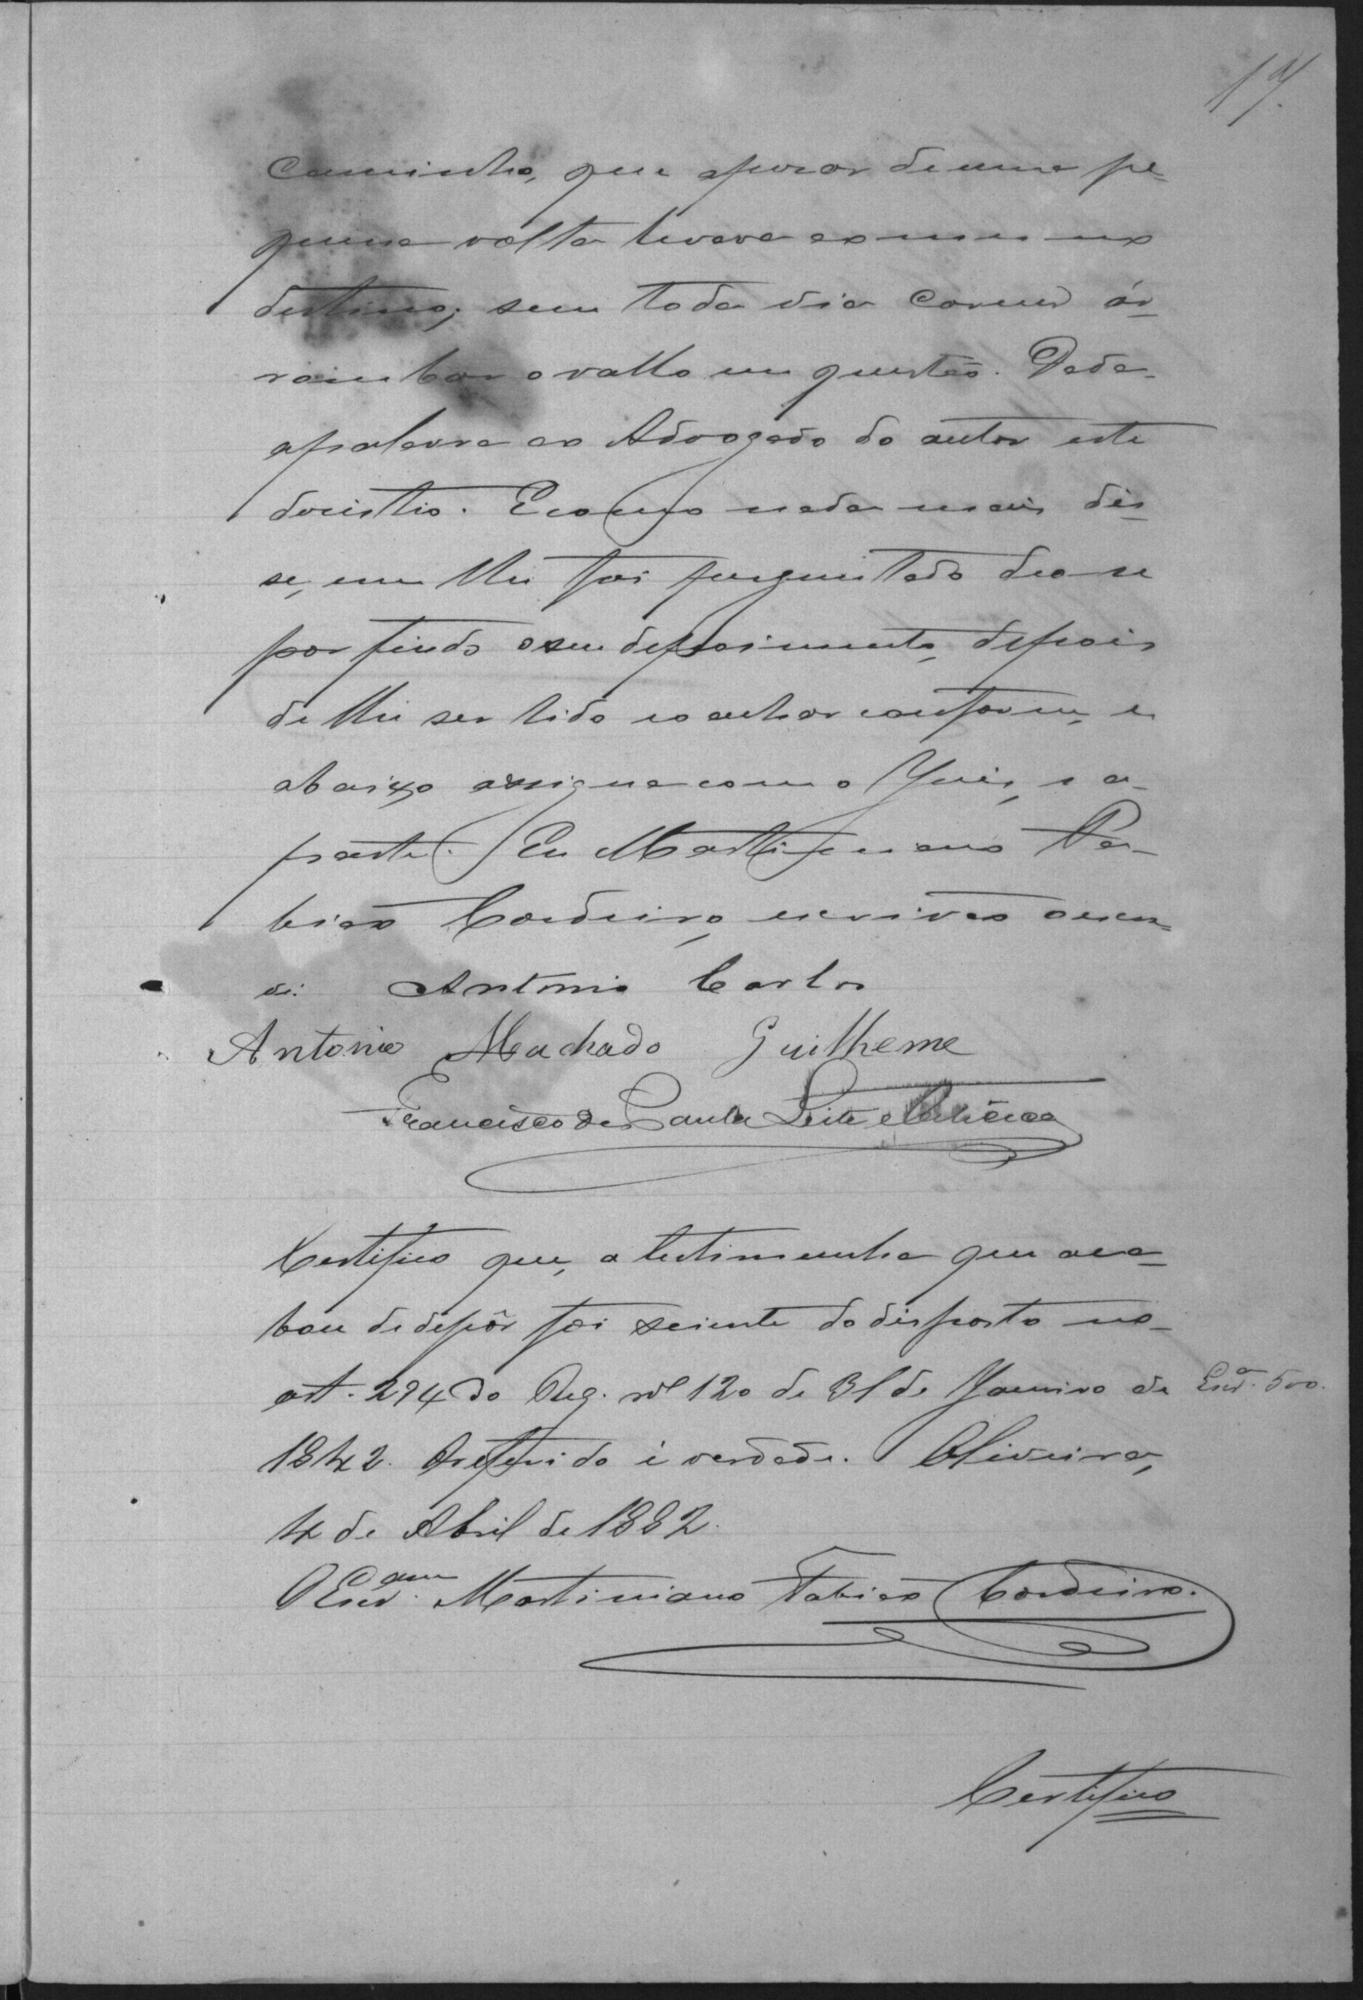 17.
caminho, que apesar de uma pe-
quena volta levava ao mesmo
destino; sem toda via correr ár-
vallo em questão. Dada
a palavra ao Advogado do autor este
desistio. E como nada mais dis-
se, nem lhe foi perguntado deo-se
por findo o seu depoimento, depois
de lhe ser lido e o achar conforme, e
abaixo assigna com o Juis, e a
parte. Eu Martiniano Fa-
bião Cordeiro, escrivão o escre-
vi. Antonio Carlos
Antonio Machado Guilherme
Francisco de Paula Leite e
Certifico que, a testimunha que aca-
bou de depôr foi sciente do disposto no
art. 294 do Reg. nº 120 de 31 de Janeiro de
Escr.ª 500.
1842. O referido é verdade. Oliveira,
4 de Abril de 1882.
O Escr.am Martiniano Fabião Cordeiro.
Certifico